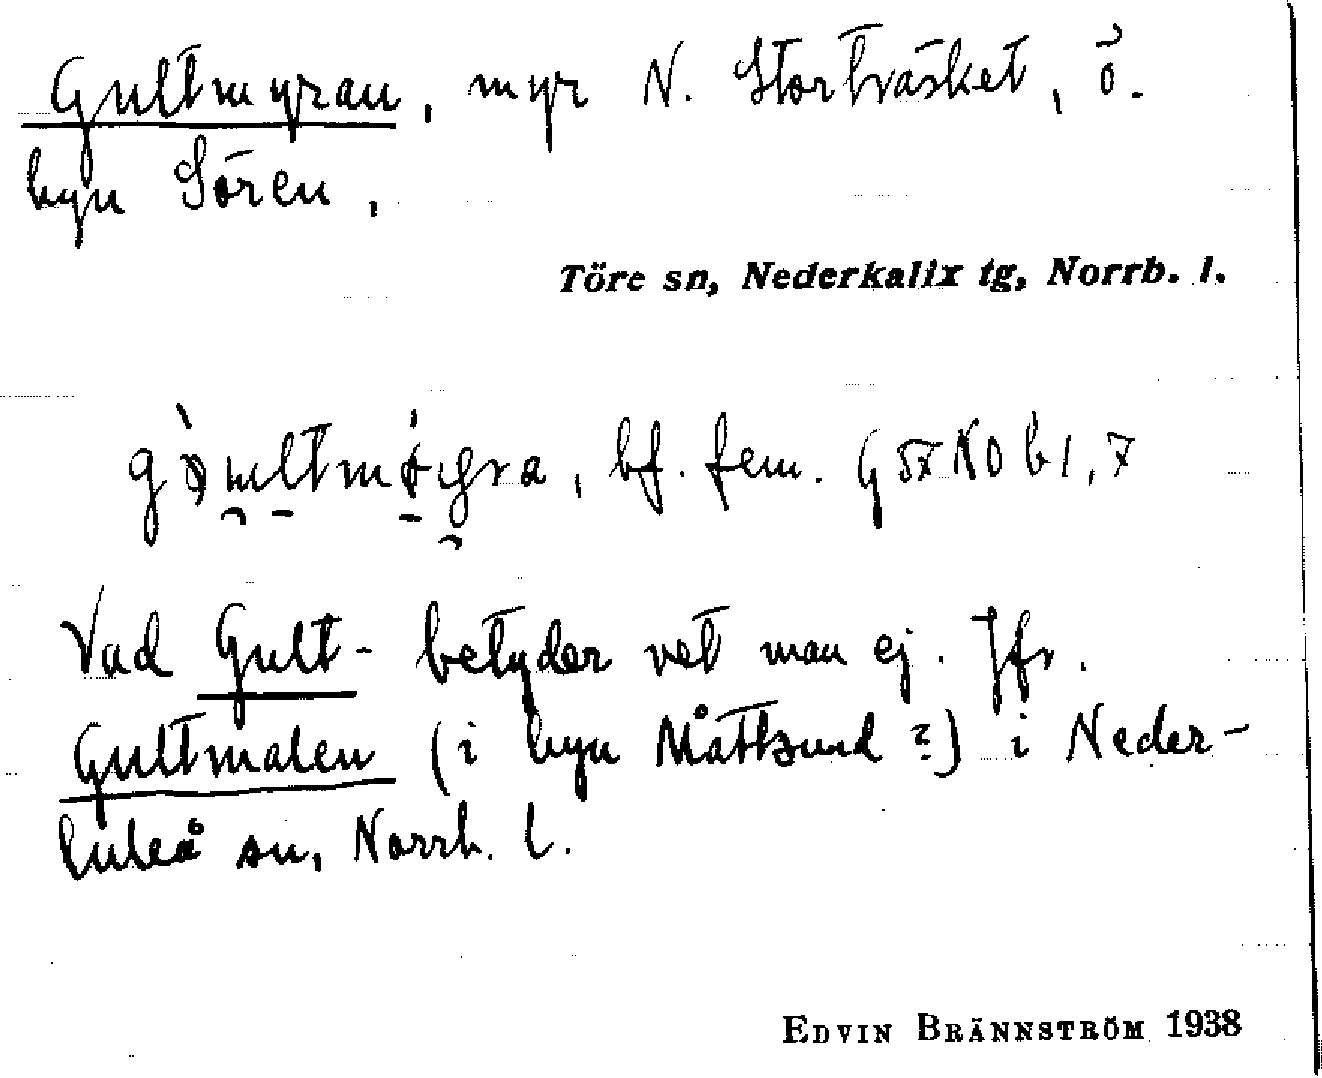 Gultmyran, myr N. Storträsket, ö.
byn Sören,
Töre sn, Nederkalix tg, Norrb. l.
bf. fem. G 57 NO b 1, 7
Vad Gult- betyder vet man ej. Jfr.
Gultmalen (i byn Måttsund ?) i Neder-
luleå sn, Norrb. l.
EDVIN BRÄNNSTRÖM 1938